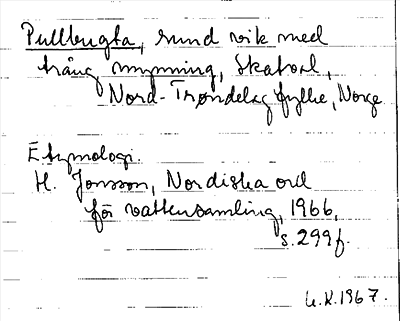 Pullbugta, rund vik med
trång mynning, Skatval,
Nord-Trøndelag fylke, Norge
Etymologi.
H. Jonsson, Nordiska ord
för vattensamling, 1966,
s. 299f.
U.K. 1967.